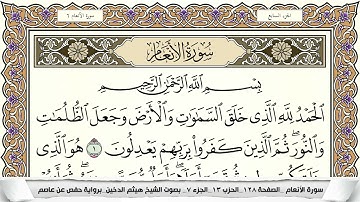 الجزء السابع
سورة الأنعام ٦
سورة الأنعام
بسم الله الرحمن الرحيم
الحمد لله الذي خلق السموت والأرض وجعل الظلمت
والنور ثم الذين كفروا بربهم يعدلون ١ هو الذي
سورة الأنعام _الصفحة ١٢٨ _الحزب ١٣ _الجزء ٧ _بصوت الشيخ هيثم الدخين _برواية حفص عن عاصم